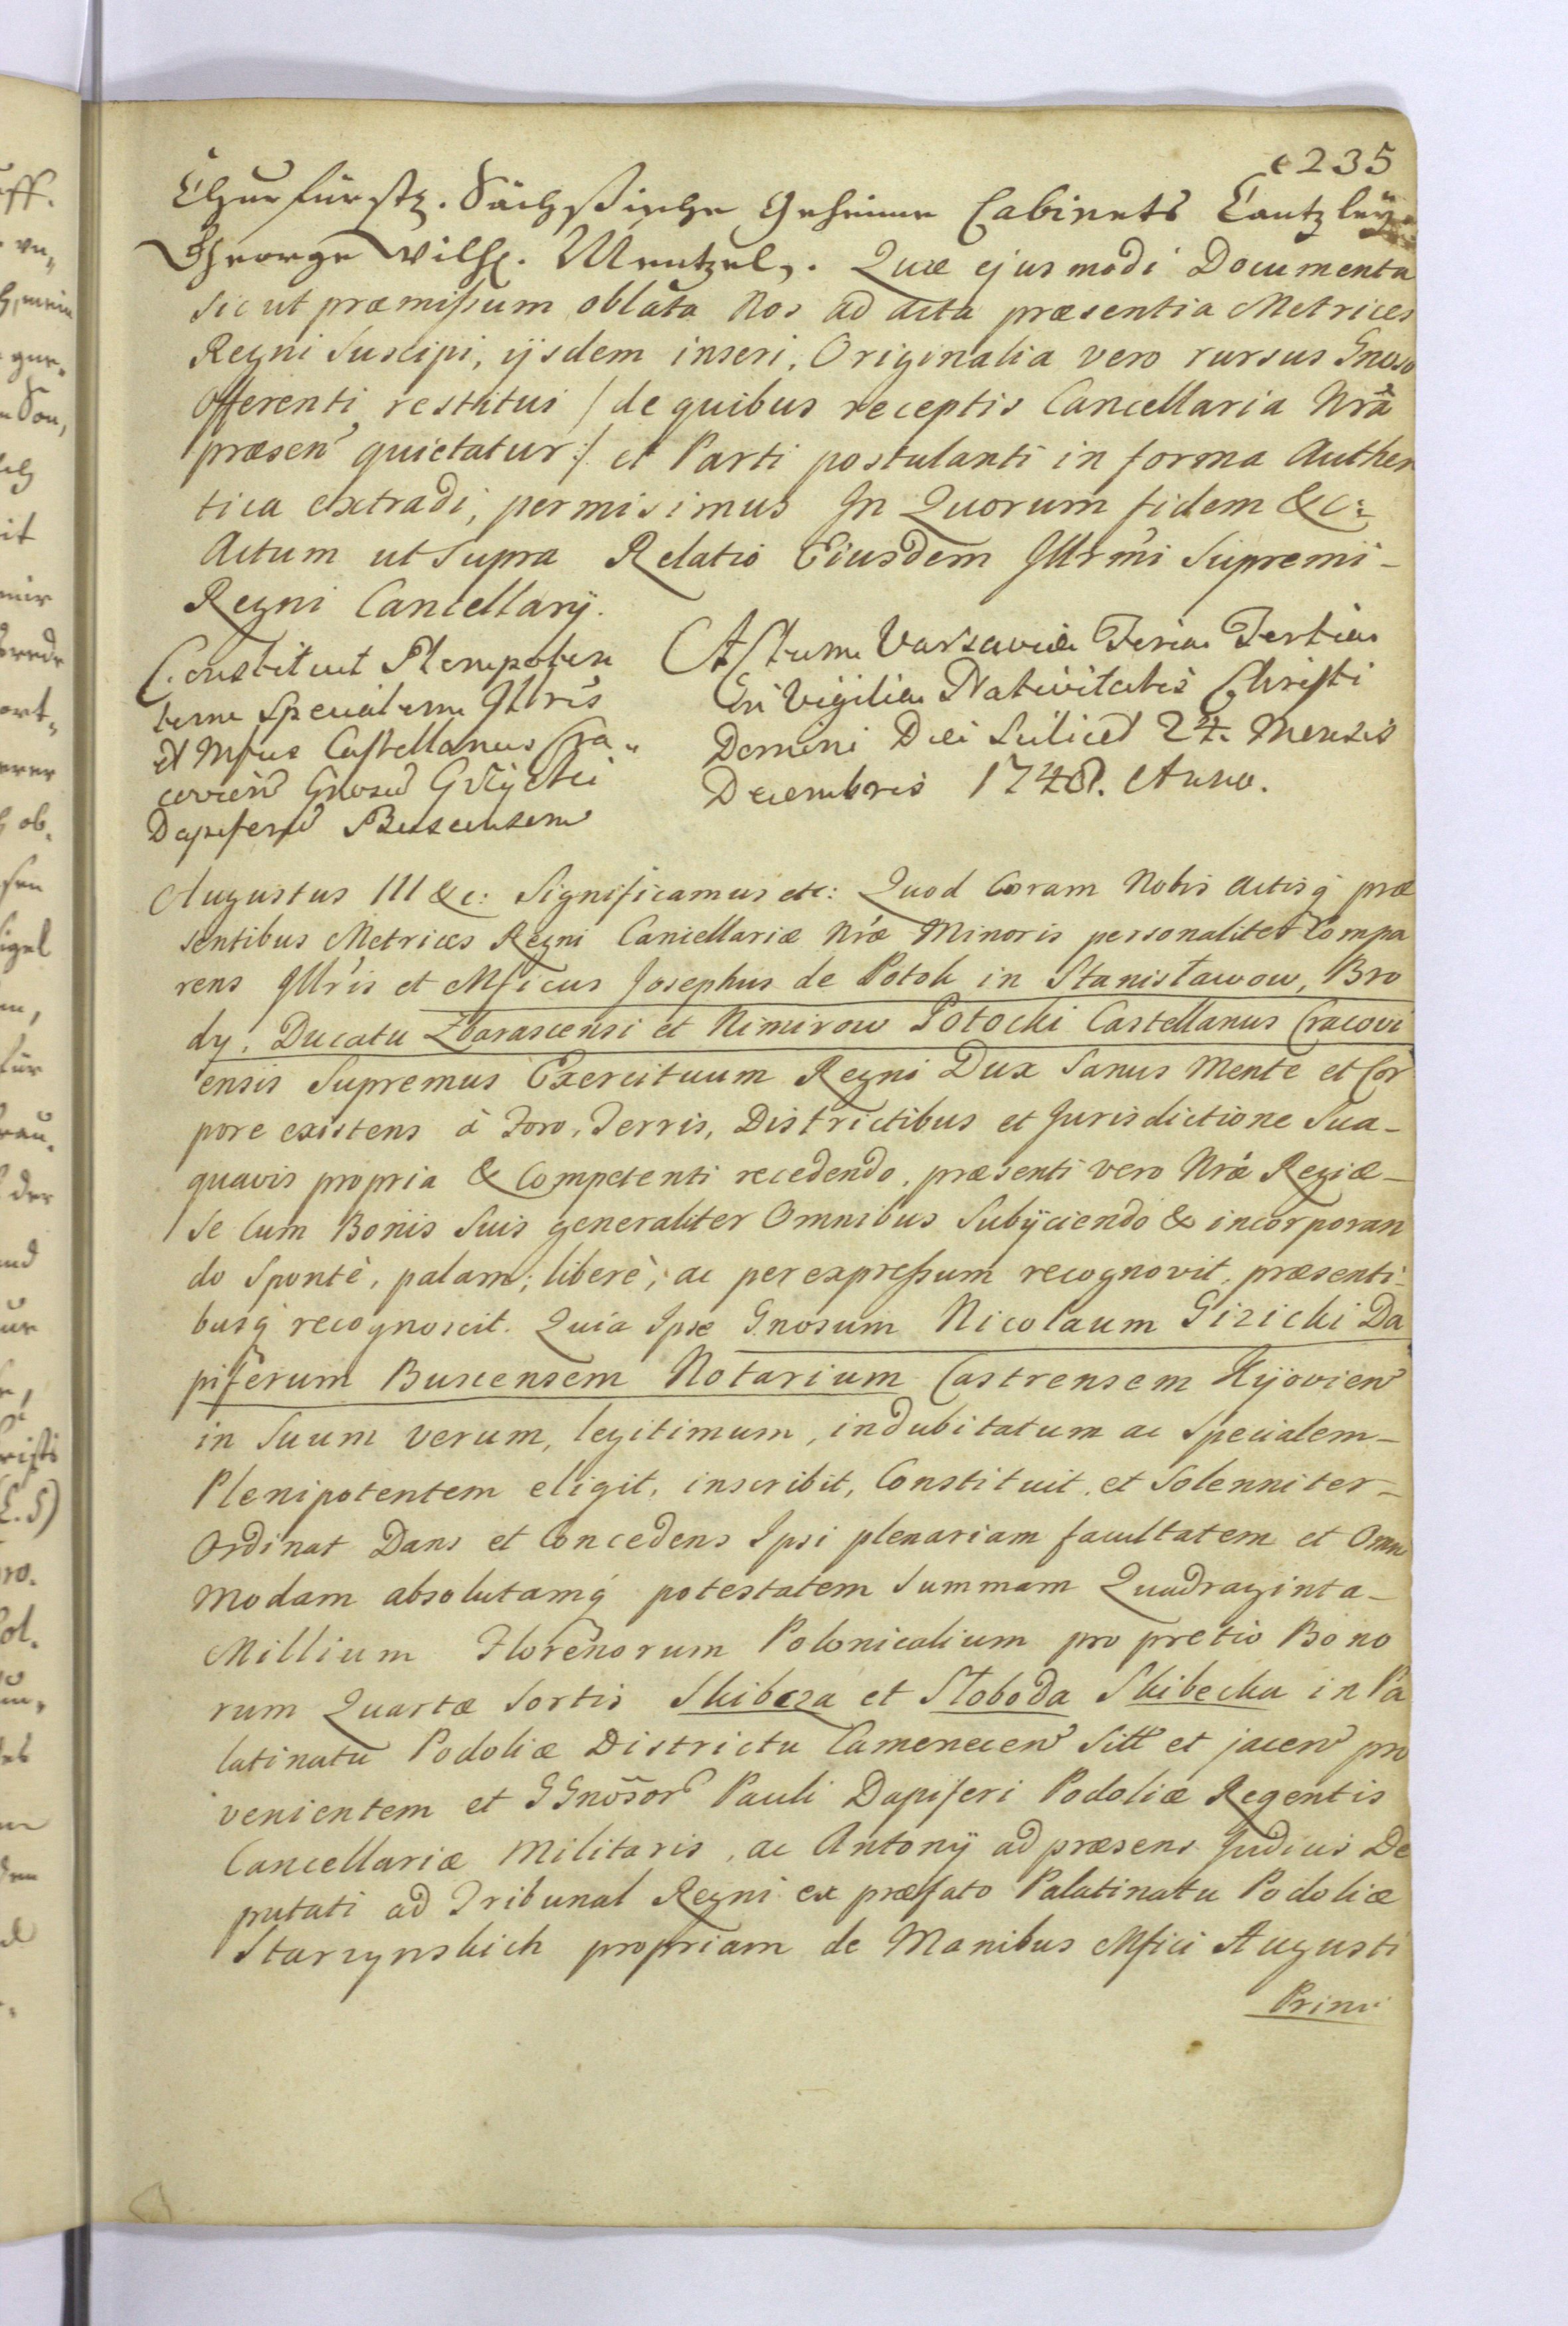 235
Churfürstl. Sächßische Geheime Cabinets Cantzley
George Wilh. Mentzel,. Quæ ejusmodi Documenta
sicut præmissum oblata Nos ad acta præsentia Metrices
Regni Suscipi, ijsdem inseri, Originalia vero rursus Gnoso
Offerenti restitui / de quibus receptis Cancellaria Nrã
præsen quietatur:/ et Parti postulanti in forma Authen
tica extradi, permisimus In Quorum fidem &c:
Actum ut supra Relatio Eiusdem Illrmi Supremi -
Regni Cancellarij.
Constituit Plenipoten
tem Specialem Illris
et Mficus Castellanus Cra„
covien Gnosu Giżycki
Dapiferu Buscensem
Actum Varsaviæ Feria Tertia
In Vigilia Nativitatis Christi
Domini Diei Scilicet 24. Mensis
Decembris 1748. Anno.
Augustus III &c: Significamus etc: Quod Coram Nobis Actisq́ præ
sentibus Metrices Regni Cancellariæ Nræ Minoris personaliter Compa
rens Illris et Mficus Josephus de Potok in Stanisławow, Bro
dy, Ducatu Zbarascensi et Nimirow Potocki Castellanus Cracovi
ensis Supremus Exercituum Regni Dux Sanus Mente et Cor
pore existens à Foro, Terris, Districtibus et Jurisdictione Sua -
quavis propria & Competenti recedendo, præsenti vero Nrã Regiæ -
Se Cum Bonis Suis generaliter Omnibus Subijciendo & incorporan
do Spontè, palam, liberè, ac per expressum recognovit, præsenti-
busq́ recognoscit. Quia Ipse Gnosum Nicolaum Gizicki Da
piferum Buscensem Notarium Castrensem Kijovien
in Suum verum, legitimum, indubitatum ac Specialem -
Plenipotentem eligit, inscribit, Constituit, et Solenniter -
Ordinat Dans et Concedens Ipsi plenariam facultatem et Omni
modam absolutamq́ potestatem Summam Quadraginta -
Millium Florenorum Polonicalium pro pretio Bono
rum Quartæ Sortis Skibcza et Słoboda Skibecka in Pa
latinatu Podoliæ Districtu Camenecen Sitt et jacen pro
venientem et GGnosor Pauli Dapiferi Podoliæ Regentis
Cancellariæ Militaris, ac Antonij ad præsens Judicis De
putati ad Tribunal Regni ex præfato Palatinatu Podoliæ
Starzynskich propriam de Manibus Mfici Augusti
Princi